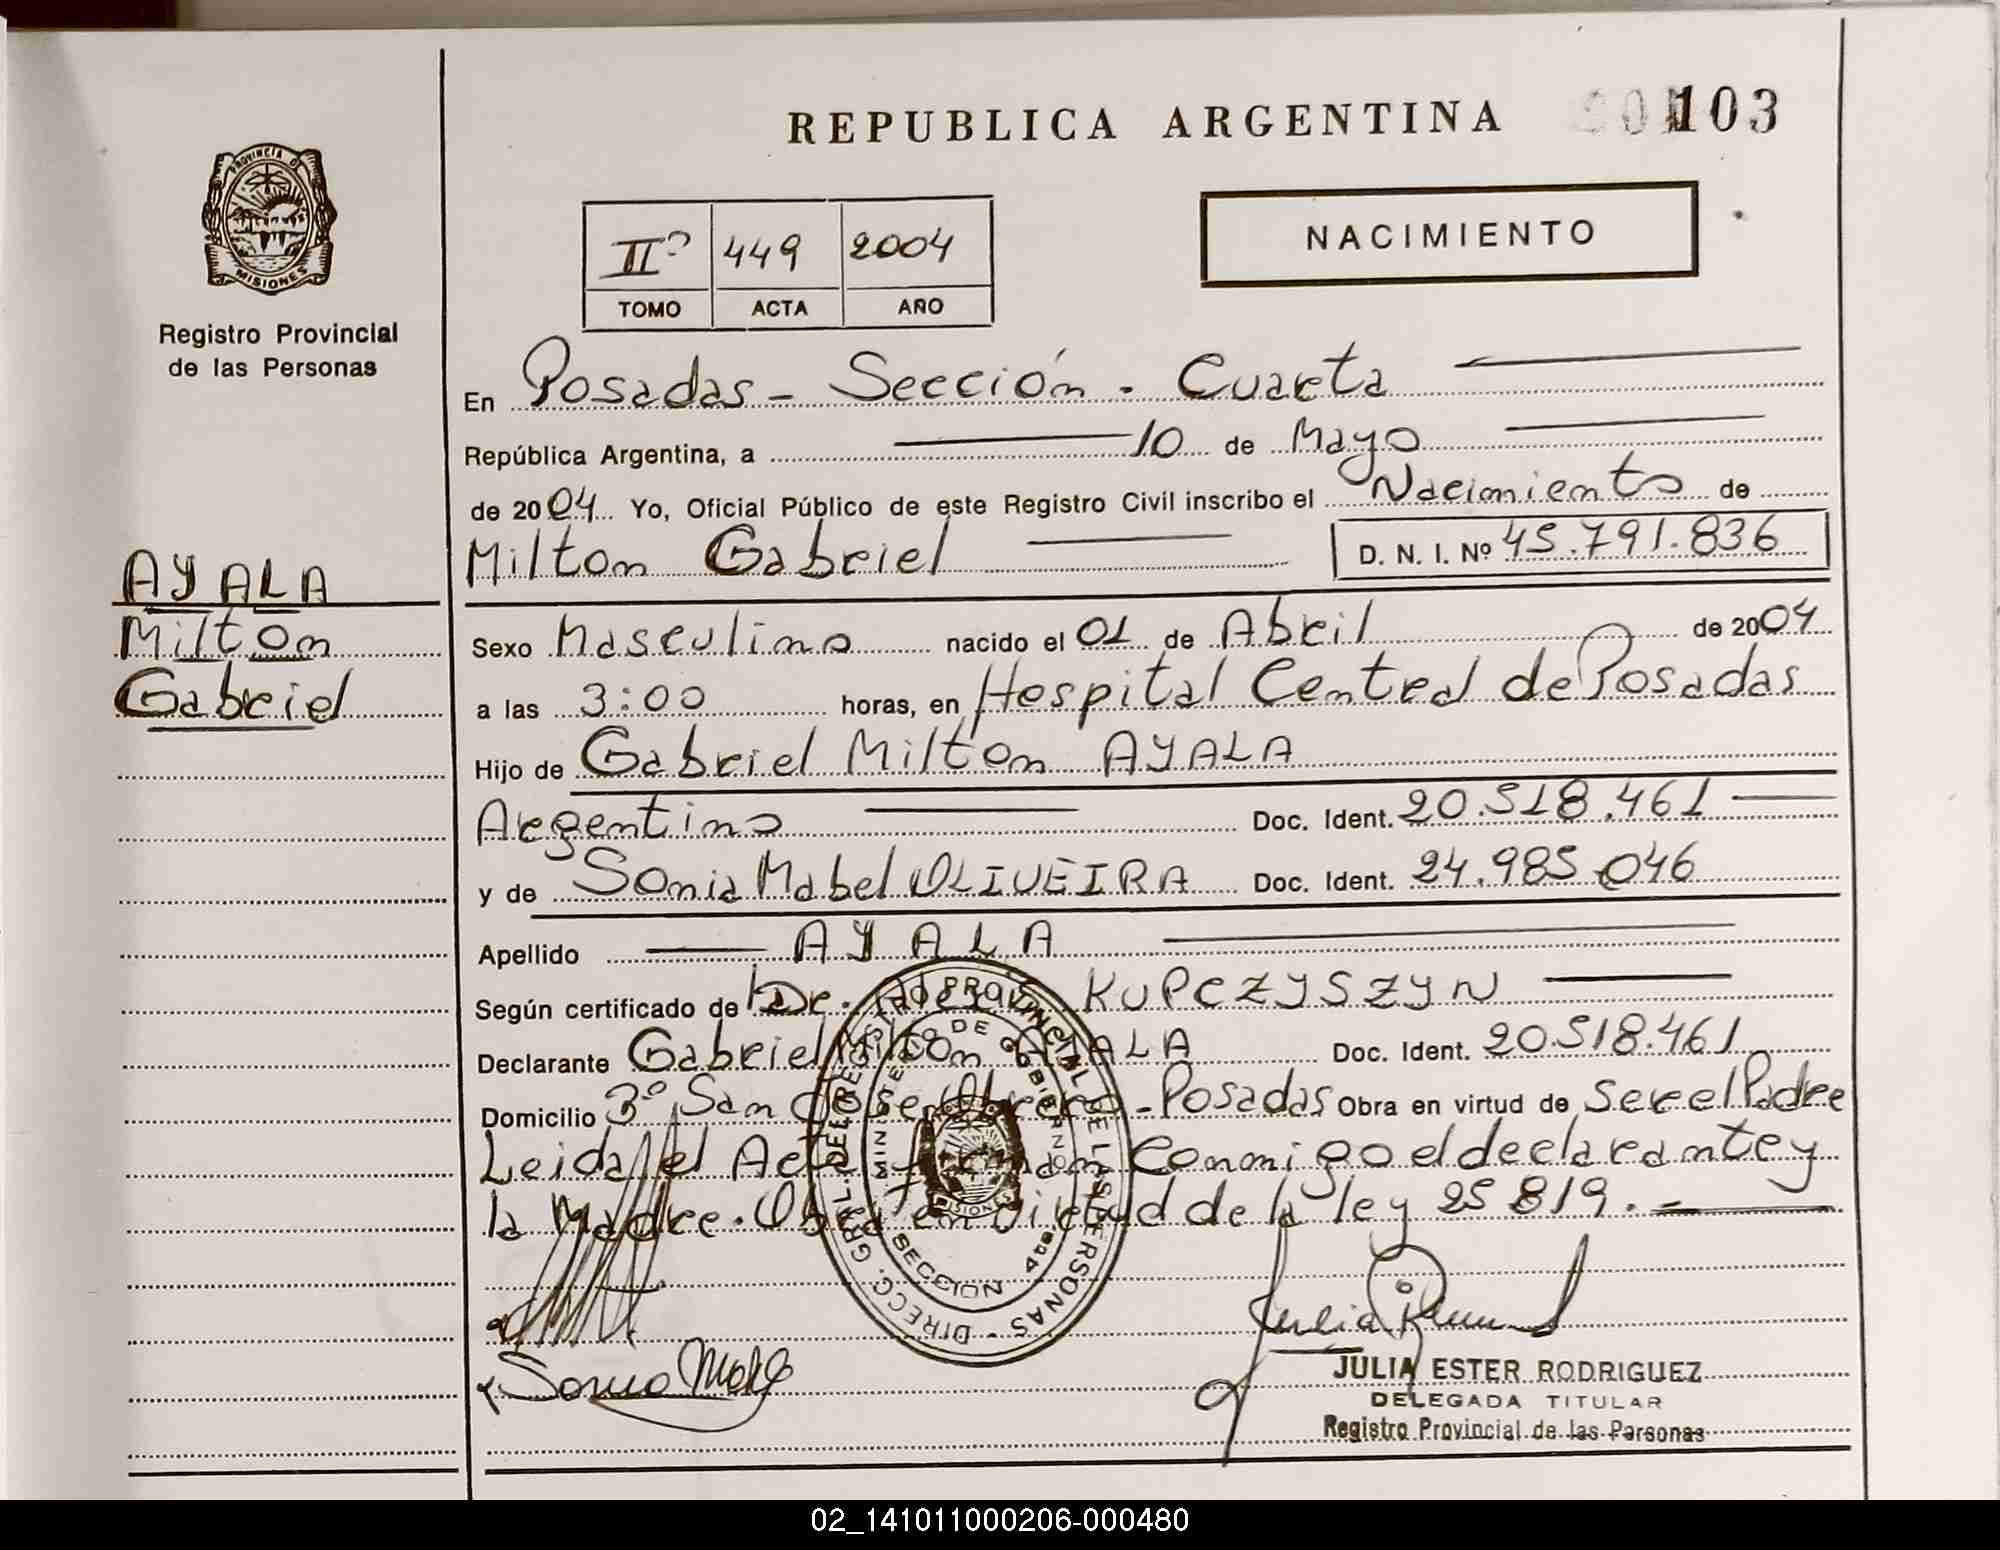 REPUBLICA ARGENTINA
103
PROVINCIA DE
MISIONES
Registro Provincial
de las Personas
IIº 449 2004
TOMO ACTA AÑO
NACIMIENTO
En Posadas - Sección - Cuarta
República Argentina, a 10 de Mayo
de 2004 Yo, Oficial Público de este Registro Civil inscribo el Nacimiento de
Milton Gabriel D. N. I. Nº 45.791.836
AYALA
Milton
Gabriel
Sexo Masculino nacido el 01 de Abril de 2004
a las 3:00 horas, en Hospital Central de Posadas
Hijo de Gabriel Milton AYALA
Argentino Doc. Ident. 20.518.461
y de Sonia Mabel OLIVEIRA Doc. Ident. 24.985.046
Apellido AYALA
Según certificado de Dr. KUPCZYSZYN
Declarante Gabriel Milton AYALA Doc. Ident. 20.518.461
Domicilio 3º San José Obrero - Posadas Obra en virtud de ser el Padre
Leida el Acta firman conmigo el declarante y
la Madre. Obra en virtud de la ley 25819.
DIRECC. GRAL. DEL REGISTRO PROVINCIAL DE LAS PERSONAS
MINISTERIO DE GOBIERNO
MISIONES
SECCION 4ta
Sonia
Julia
JULIA ESTER RODRIGUEZ
DELEGADA TITULAR
Registro Provincial de las Personas
02_141011000206-000480